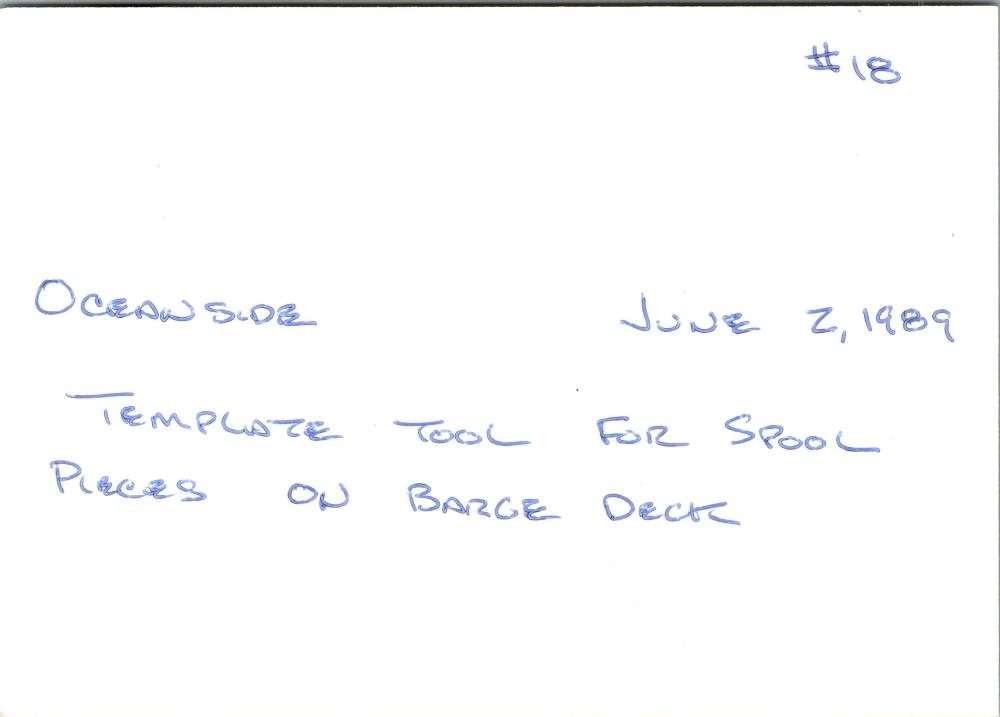 #18
OCEANSIDE JUNE 2, 1989
TEMPLATE TOOL FOR SPOOL
PIECES ON BARGE DECK